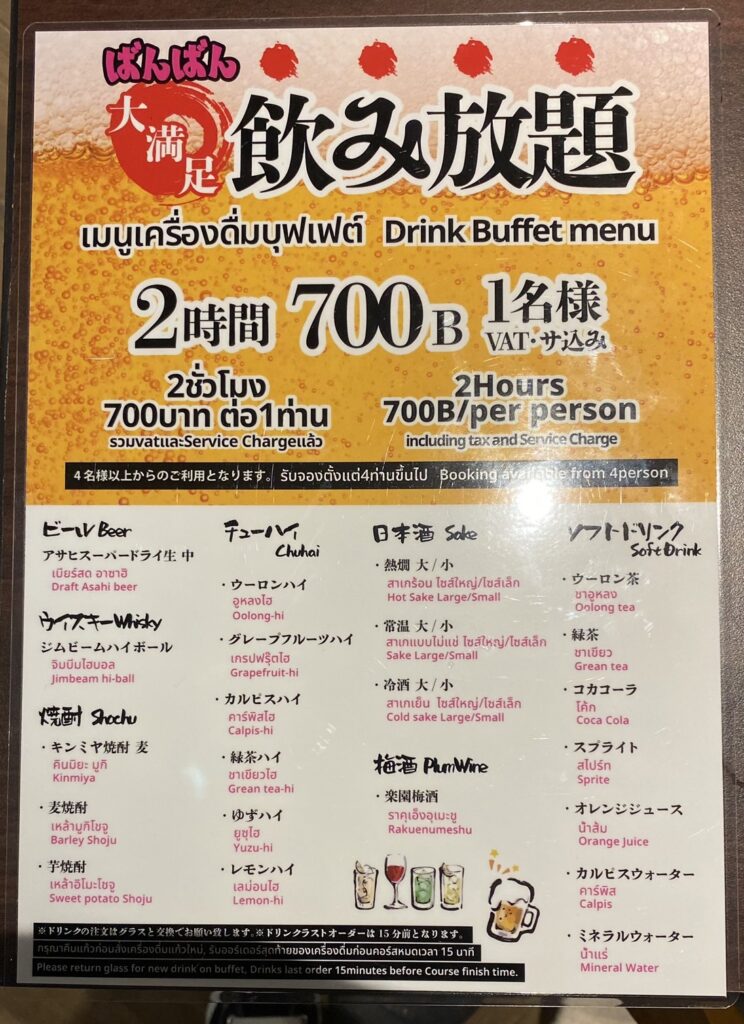 ばんばん
大満足
飲み放題
เมนูเครื่องดื่มบุฟเฟต์ Drink Buffet menu
2時間 700B 1名様
VAT・サ込み
2ชั่วโมง
700บาท ต่อ1ท่าน
รวมvatและService Chargeแล้ว
2Hours
700B/per person
including tax and Service Charge
4名様以上からのご利用となります。 รับจองตั้งแต่4ท่านขึ้นไป Booking available from 4person
ビール Beer
アサヒスーパードライ生 中
เบียร์สด อาซาฮิ
Draft Asahi beer
ウイスキー Whisky
ジムビームハイボール
จิมบีมไฮบอล
Jimbeam hi-ball
焼酎 Shochu
・キンミヤ焼酎 麦
คินมิยะ มูกิ
Kinmiya
・麦焼酎
เหล้ามูกิโชจู
Barley Shoju
・芋焼酎
เหล้าอิโมะโชจู
Sweet potato Shoju
チューハイ
Chuhai
・ウーロンハイ
อูหลงไฮ
Oolong-hi
・グレープフルーツハイ
เกรปฟรุ๊ตไฮ
Grapefruit-hi
・カルピスハイ
คาร์พิสไฮ
Calpis-hi
・緑茶ハイ
ชาเขียวไฮ
Grean tea-hi
・ゆずハイ
ยูซุไฮ
Yuzu-hi
・レモンハイ
เลม่อนไฮ
Lemon-hi
日本酒 Sake
・熱燗 大/小
สาเกร้อน ไซส์ใหญ่/ไซส์เล็ก
Hot Sake Large/Small
・常温 大/小
สาเกแบบไม่แช่ ไซส์ใหญ่/ไซส์เล็ก
Sake Large/Small
・冷酒 大/小
สาเกเย็น ไซส์ใหญ่/ไซส์เล็ก
Cold sake Large/Small
梅酒 PlumWine
・楽園梅酒
ราคุเอ็งอุเมะชู
Rakuenumeshu
ソフトドリンク
Soft Drink
・ウーロン茶
ชาอูหลง
Oolong tea
・緑茶
ชาเขียว
Grean tea
・コカコーラ
โค้ก
Coca Cola
・スプライト
สไปร์ท
Sprite
・オレンジジュース
น้ำส้ม
Orange Juice
・カルピスウォーター
คาร์พิส
Calpis
・ミネラルウォーター
น้ำแร่
Mineral Water
※ドリンクの注文はグラスと交換でお願い致します。※ドリンクラストオーダーは15分前となります。
กรุณาคืนแก้วก่อนสั่งเครื่องดื่มแก้วใหม่, รับออร์เดอร์สุดท้ายของเครื่องดื่มก่อนคอร์สหมดเวลา 15 นาที
Please return glass for new drink on buffet, Drinks last order 15minutes before Course finish time.